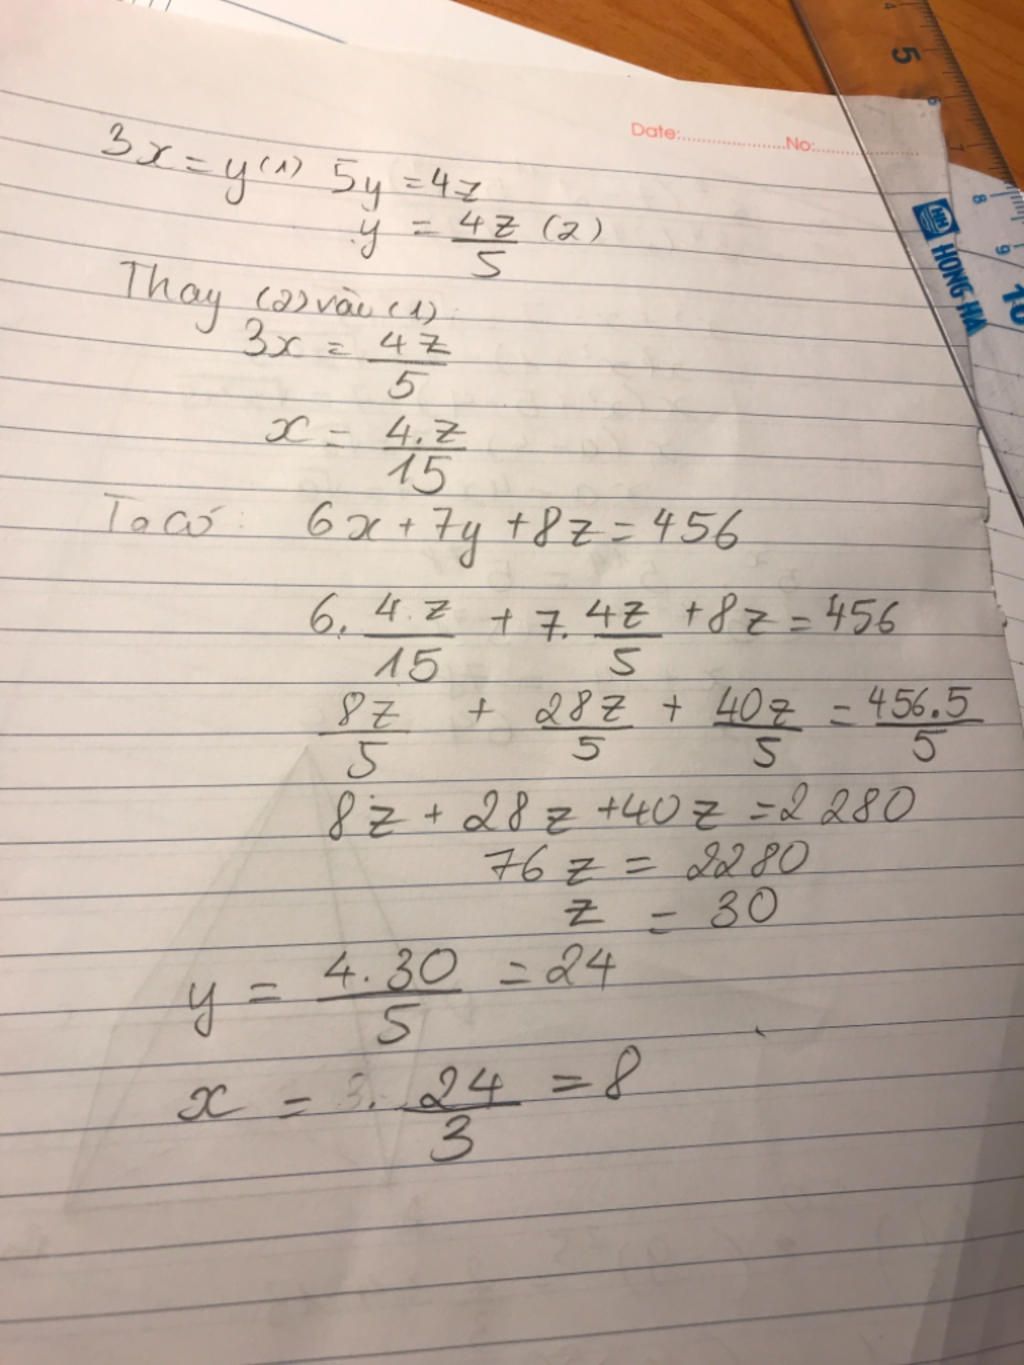 Date:.....................No:....................
3x = y (1) 5y = 4z
y = 4z/5 (2)
Thay (2) vào (1)
3x = 4z/5
x = 4.z/15
Ta có: 6x + 7y + 8z = 456
6. 4.z/15 + 7. 4z/5 + 8z = 456
8z/5 + 28z/5 + 40z/5 = 456.5/5
8z + 28z + 40z = 2280
76z = 2280
z = 30
y = 4.30/5 = 24
x = 24/3 = 8
4
5
6
7
8
9
10
HONG HA